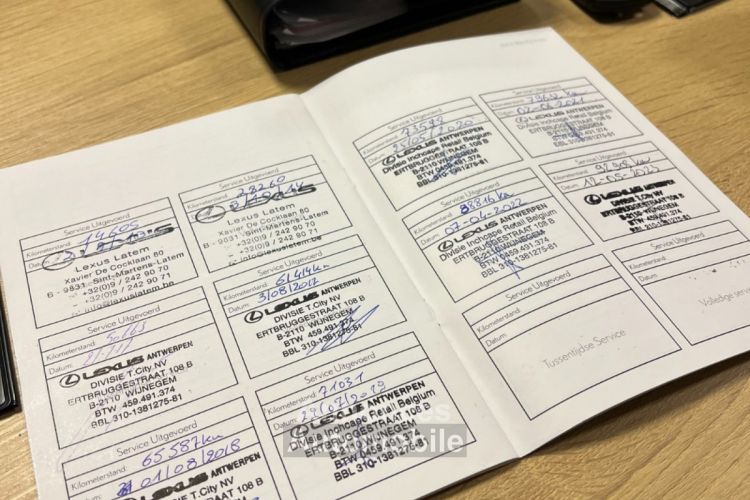 Service Uitgevoerd
Kilometerstand: 14605
Datum:
LEXUS
Lexus Latem
Xavier De Cocklaan 80
B - 9831 Sint-Martens-Latem
+32(0)9 / 242 90 70
+32(0)9 / 242 90 71
info@lexuslatem.be
Service Uitgevoerd
Kilometerstand: 28260
LEXUS
Lexus Latem
Xavier De Cocklaan 80
B - 9831 Sint-Martens-Latem
+32(0)9 / 242 90 70
+32(0)9 / 242 90 71
info@lexuslatem.be
Service Uitgevoerd
Kilometerstand:
Datum:
LEXUS ANTWERPEN
DIVISIE T.City NV
ERTBRUGGESTRAAT 108 B
B-2110 WIJNEGEM
BTW 459.491.374
BBL 310-1381275-81
Service Uitgevoerd
Kilometerstand: 61414km
Datum: 3/08/2017
LEXUS ANTWERPEN
DIVISIE T.City NV
ERTBRUGGESTRAAT 108 B
B-2110 WIJNEGEM
BTW 459.491.374
BBL 310-1381275-81
Service Uitgevoerd
Kilometerstand: 65587km
01/08/2018
LEXUS ANTWERPEN
DIVISIE T.City NV
Service Uitgevoerd
Kilometerstand: 71031
Datum:
LEXUS ANTWERPEN
Divisie Inchcape Retail Belgium
ERTBRUGGESTRAAT 108 B
B-2110 WIJNEGEM
BTW 459.491.374
BBL 310-1381275-81
Service Uitgevoerd
Kilometerstand:
Datum:
LEXUS ANTWERPEN
Divisie Inchcape Retail Belgium
ERTBRUGGESTRAAT 108 B
B-2110 WIJNEGEM
BTW 459.491.374
BBL 310-1381275-81
Service Uitgevoerd
LEXUS ANTWERPEN
Divisie Inchcape Retail Belgium
ERTBRUGGESTRAAT 108 B
B-2110 WIJNEGEM
BTW 459.491.374
BBL 310-1381275-81
Service Uitgevoerd
Kilometerstand: 88816km
Datum: 07-04-2022
LEXUS ANTWERPEN
Divisie Inchcape Retail Belgium
ERTBRUGGESTRAAT 108 B
B-2110 WIJNEGEM
BTW 459.491.374
BBL 310-1381275-81
Service Uitgevoerd
Kilometerstand:
Datum: 12-05-2023
LEXUS ANTWERPEN
DIVISIE T.City NV
ERTBRUGGESTRAAT 108 B
B-2110 WIJNEGEM
BTW 459.491.374
BBL 310-1381275-81
Service Uitgevoerd
Kilometerstand:
Datum:
Tussentijdse Service
Service Uitgevoerd
Kilometerstand:
Datum:
Volledige service